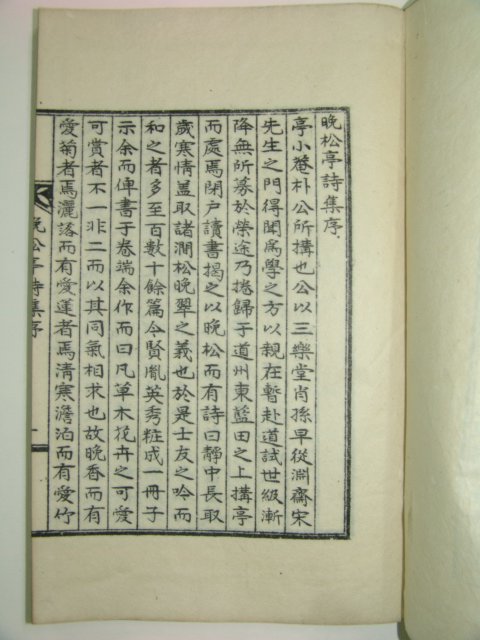 晩松亭詩集序
亭小菴朴公所搆也公以三樂堂肖孫早從淵齋宋
先生之門得聞爲學之方以親在暫赴道試世級漸
降無所慕於榮途乃捲歸于道州東藍田之上搆亭
而處焉閉户讀書揭之以晩松而有詩曰靜中長取
歲寒情盖取諸澗松晩翠之義也於是士友之吟而
和之者多至百數十餘篇今賢胤英秀粧成一冊子
示余而俾書于卷端余作而曰凡草木花卉之可愛
可賞者不一非二而以其同氣相求也故晩香而有
愛菊者焉灑落而有愛蓮者焉清寒澹泊而有愛竹
晩松亭詩集序